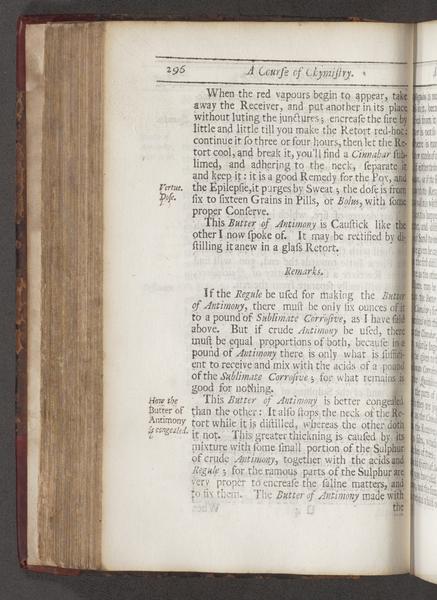 296 A Courſe of Chymiſtry.
When the red vapours begin to appear, take
away the Receiver, and put another in its place
without luting the junctures; encreaſe the fire by
little and little till you make the Retort red-hot:
continue it ſo three or four hours, then let the Re-
tort cool, and break it, you'll find a Cinnabar ſub-
limed, and adhering to the neck, ſeparate it
and keep it: it is a good Remedy for the Pox, and
Vertue.
the Epilepſie, it purges by Sweat; the doſe is from
Doſe.
ſix to ſixteen Grains in Pills, or Bolus, with ſome
proper Conſerve.
This Butter of Antimony is Cauſtick like the
other I now ſpoke of. It may be rectified by di-
ſtilling it anew in a glaſs Retort.
Remarks.
If the Regule be uſed for making the Butter
of Antimony, there muſt be only ſix ounces of it
to a pound of Sublimate Corroſive, as I have ſaid
above. But if crude Antimony be uſed, there
muſt be equal proportions of both, becauſe in a
pound of Antimony there is only what is ſuffici-
ent to receive and mix with the acids of a pound
of the Sublimate Corroſive; for what remains is
good for nothing.
How the
Butter of
Antimony
is congealed.
This Butter of Antimony is better congealed
than the other: It alſo ſtops the neck of the Re-
tort while it is diſtilled, whereas the other doth
it not. This greater thickning is cauſed by its
mixture with ſome ſmall portion of the Sulphur
of crude Antimony, together with the acids and
Regule; for the ramous parts of the Sulphur are
very proper to encreaſe the ſaline matters, and
to fix them. The Butter of Antimony made with
the